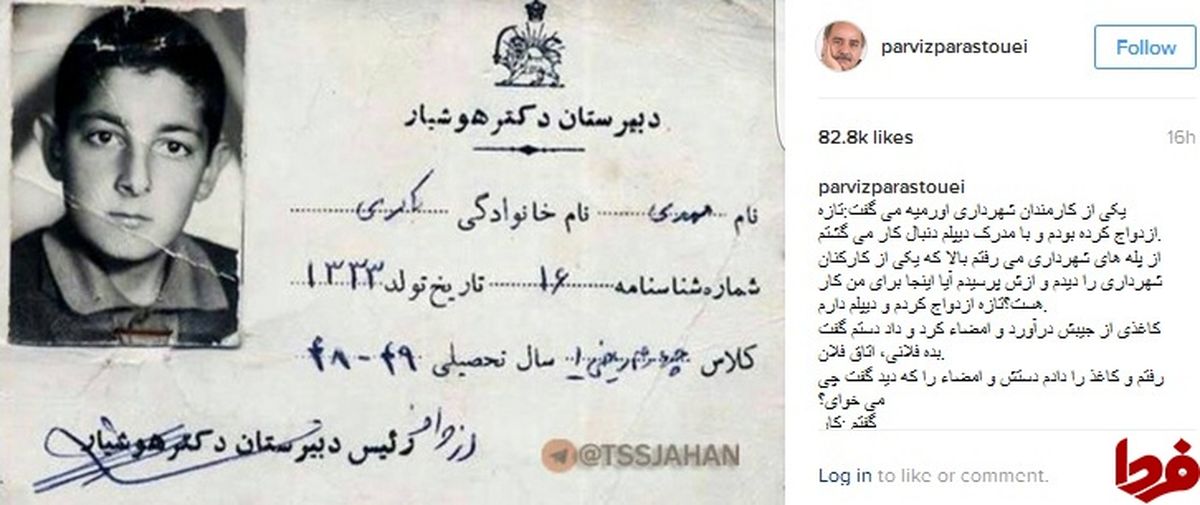 دبیرستان دکتر هوشیار
نام مهدی نام خانوادگی باکری
شماره شناسنامه ۱۶ تاریخ تولد ۱۳۳۳
کلاس چهارم ریاضی ۱ سال تحصیلی ۴۹-۴۸
رئیس دبیرستان دکتر هوشیار
@TSSJAHAN
parvizparastouei
Follow
82.8k likes
16h
parvizparastouei
یکی از کارمندان شهرداری اورمیه می گفت:تازه
ازدواج کرده بودم و با مدرک دیپلم دنبال کار می گشتم.
از پله های شهرداری می رفتم بالا که یکی از کارکنان
شهرداری را دیدم و ازش پرسیدم آیا اینجا برای من کار
هست؟تازه ازدواج کردم و دیپلم دارم.
کاغذی از جیبش درآورد و امضاء کرد و داد دستم گفت
بده فلانی، اتاق فلان.
رفتم و کاغذ را دادم دستش و امضاء را که دید گفت چی
می خوای؟
گفتم :کار
Log in to like or comment.
فردا